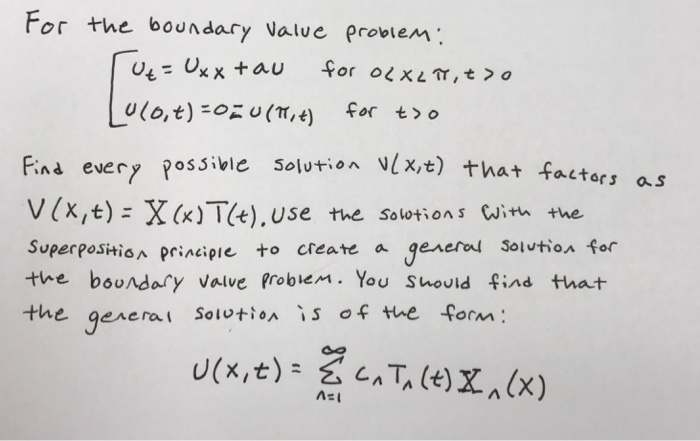 For the boundary value problem:
Ut = Uxx + au for 0<x<π, t>0
U(0,t)=0=U(π,t) for t>0
Find every possible solution V(x,t) that factors as
V(x,t) = X(x)T(t). Use the solutions with the
superposition principle to create a general solution for
the boundary value problem. You should find that
the general solution is of the form:
U(x,t) = ∞Σn=1 cn Tn(t) Xn(x)